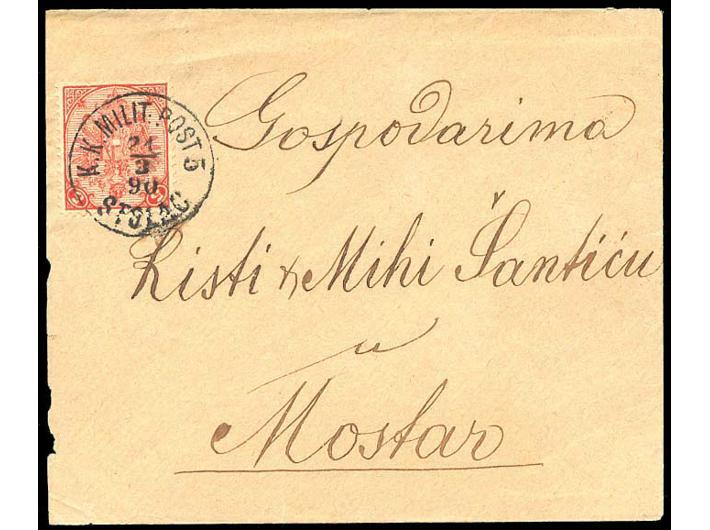 K.K. MILIT. POST 5
3
90
STOLAC
Gospodarima
Risti & Mihi Šantiću
u
Mostar